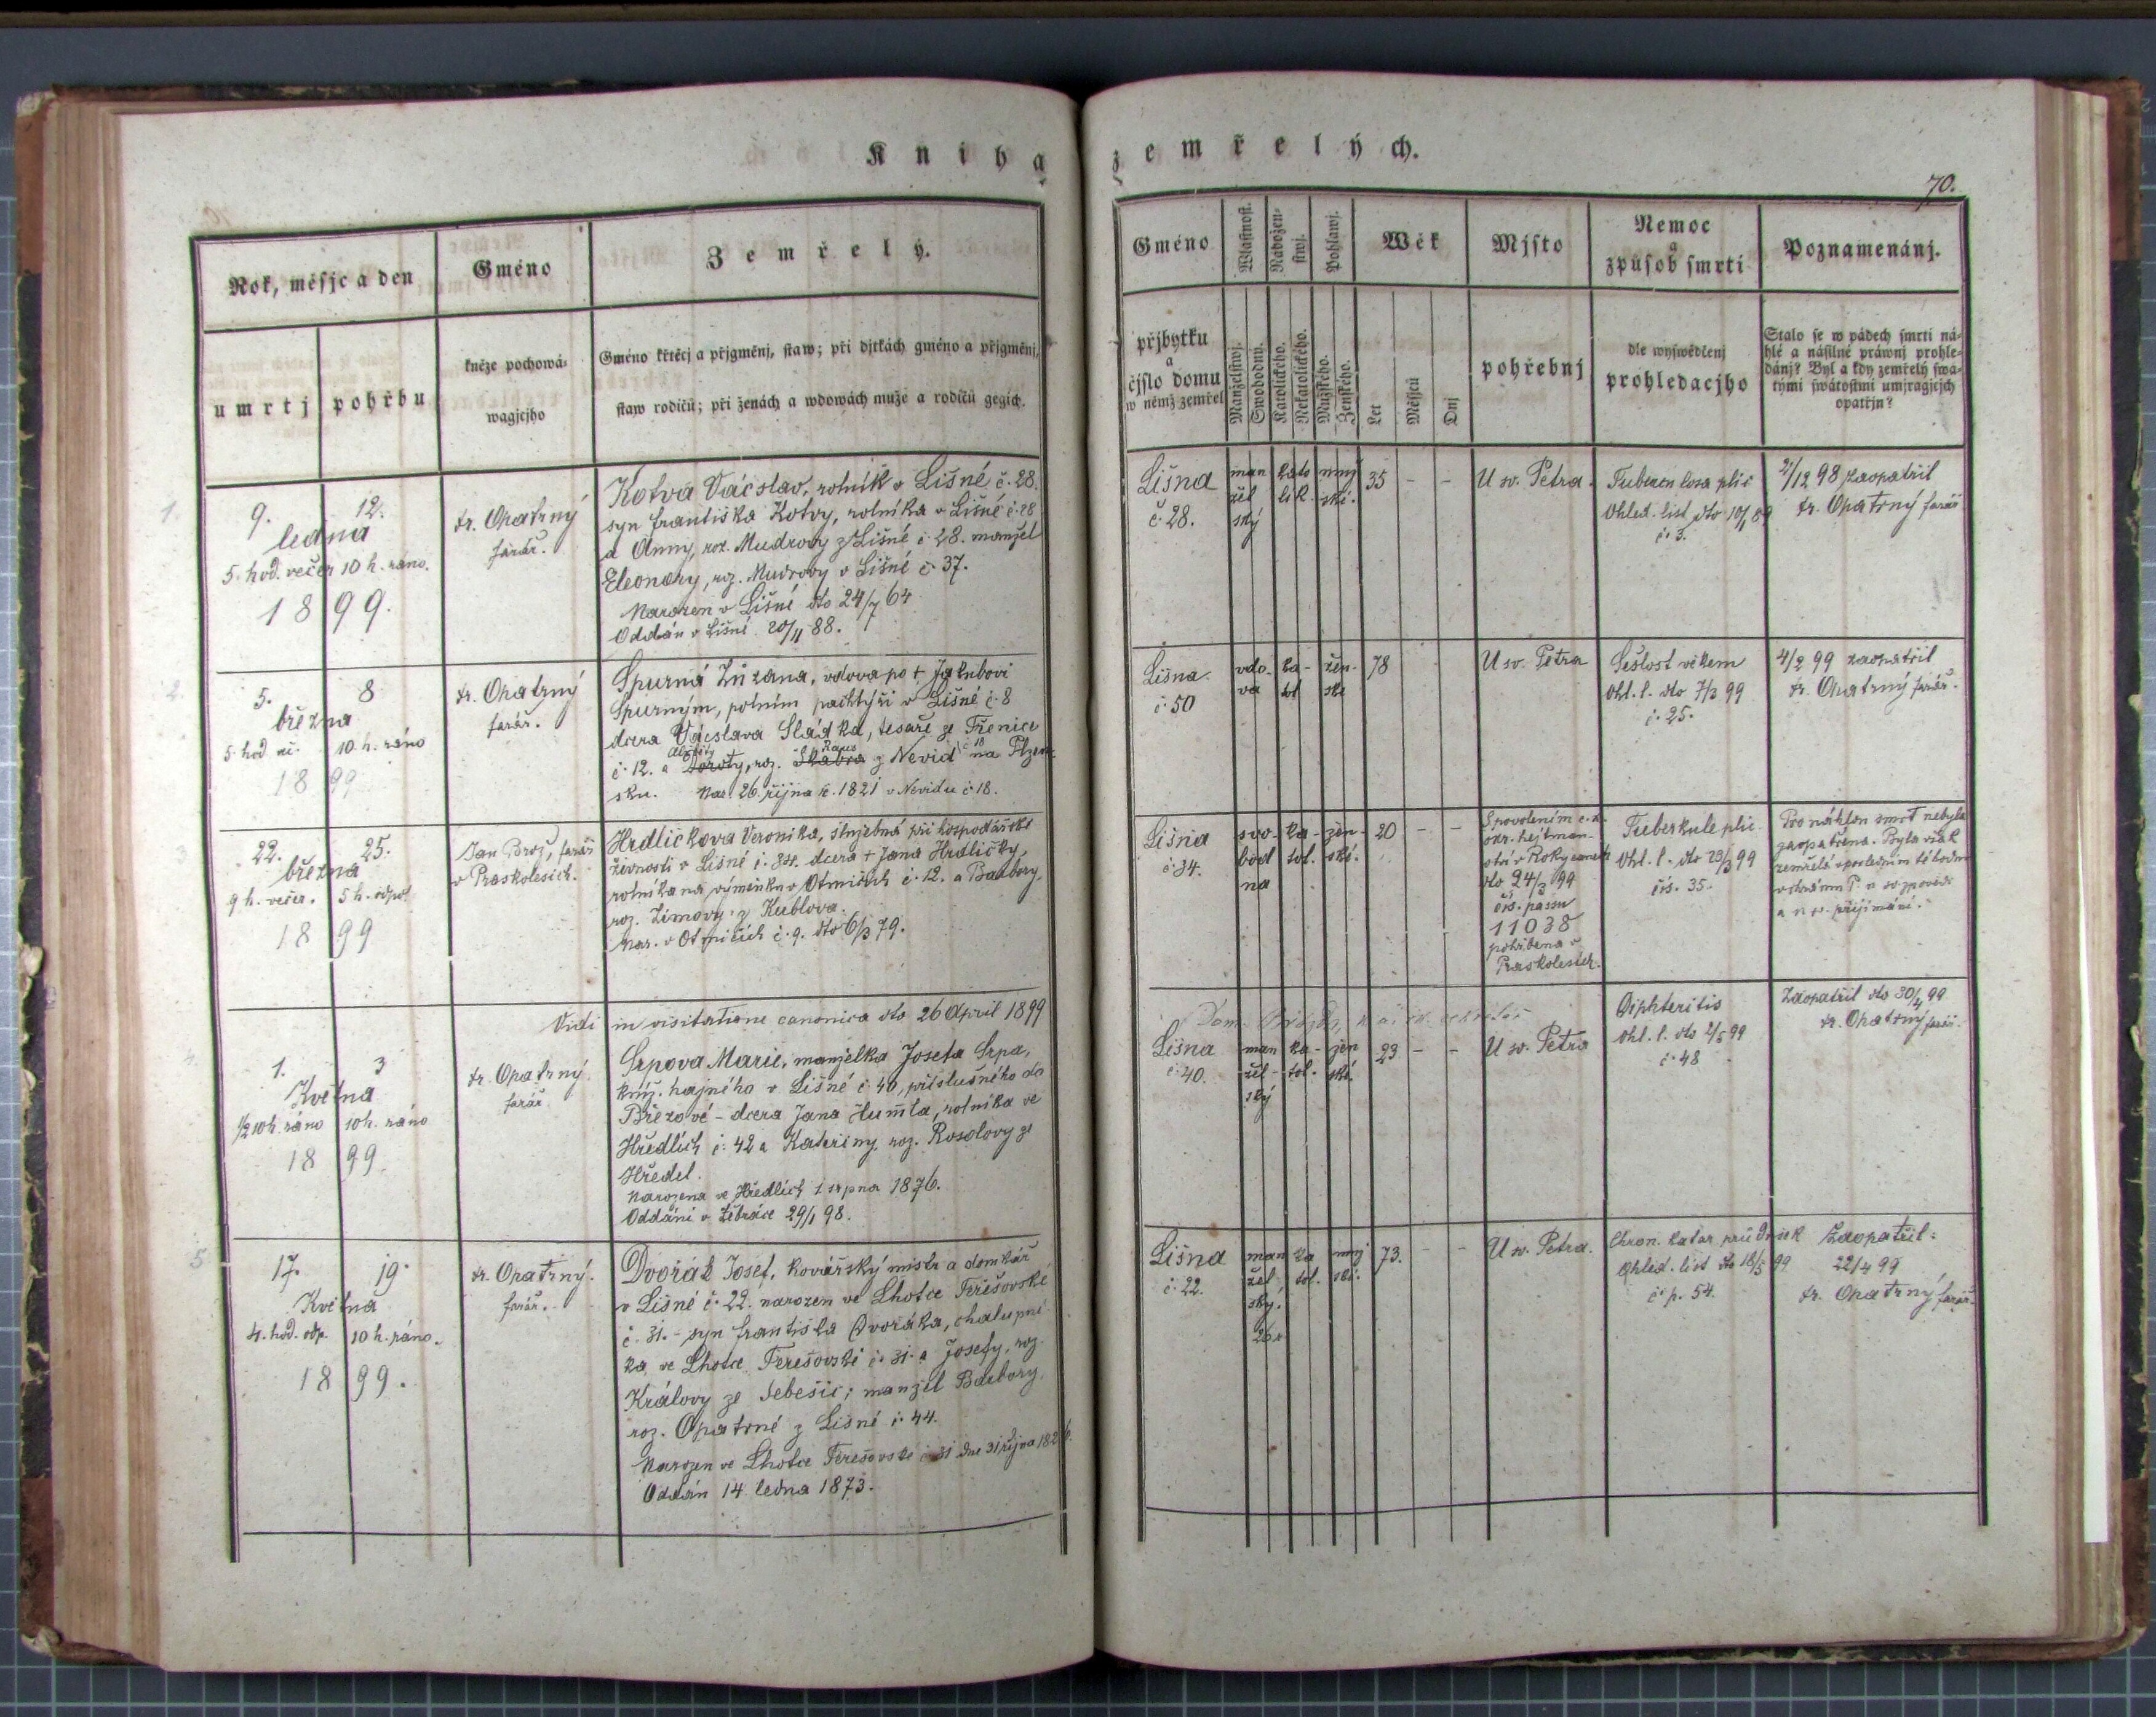 Kniha zemřelých.
70.
Rok, měsjc a den
Gméno
Zemřelý.
umrtj
pohřbu
kněze pochowá-
wagjcjho
Gméno křtěcj a přjgměnj, staw; při djtkách gméno a přjgměnj,
staw rodičů; při ženách a wdowách muže a rodičů gegich.
Gméno
Wlastnost.
Nábožen-
stwj.
Pohlawj.
Wěk
Mjsto
Nemoc
a
způsob smrti
Poznamenánj.
přjbytku
a
čjslo domu
w němž zemřel
Manželstwj.
Swobodny.
Katolického.
Nekatolického.
Mužského.
Ženského.
Let
Měsjců
Dnj
pohřebnj
dle wyswědčenj
prohledacjho
Stalo se w pádech smrti ná-
hlé a násilné práwnj prohle-
dánj? Byl a kdy zemřelý swa-
tými swátostmi umjragjcjch
opatřjn?
1.
9. 12.
ledna
5. hod. večer 10 h. ráno.
1899.
Fr. Opatrný
farář.
Kotva Václav, rolník v Lišné č. 28.
syn Františka Kotvy, rolníka v Lišné č. 28
a Anny, roz. Mudrovy z Lišné č. 28. manžel
Eleonory, roz. Mudrovy v Lišné č. 37.
Narozen v Lišné dto 24/7 64
Oddán v Lišné 20/11 88.
Lišna
č. 28.
man
žel
ský
kato
lik.
muž
ské.
35 - -
U sv. Petra.
Tuberculosa plic
Ohled. list dto 10/1 89
č. 3.
2/12 98 zaopatřil
Fr. Opatrný farář
2.
5. 8
března
5. hod. več. 10. h. ráno
1899
Fr. Opatrný
farář.
Spurná Zuzana, vdova po + Jakubovi
Spurným, polním pachtýři v Lišné č. 8
dcera Václava Sládka, tesaře ze Třenice
č. 12. a Alžběty Doroty, roz. Raus Skabra z Nevid č 18 na Plzen-
sku. Nar. 26. října r. 1821 v Nevidu č 18.
Lišna
č. 50
vdo-
va
ka-
tol
žen-
ské
78
U sv. Petra
Sešlost věkem
Ohl. l. dto 7/3 99
č. 25.
4/2 99 zaopatřil
Fr. Opatrný farář.
3
22. 25.
března
9 h. večer. 5 h. odpol
1899
Jan Brož, farář
v Praskolesích.
Hrdličkova Veronika, služebná při hospodářské
živnosti v Lišné č. 34. dcera + Jana Hrdličky,
rolníka na výměnku v Otmičích č. 12. a Barbory,
roz. Zimovy z Kublova.
Nar. v Otmičích č. 9. dto 6/3 79.
Lišna
č. 34.
svo-
bod
na
ka-
tol.
žen-
ské.
20 - -
S povolením c. k.
okr. hejtman-
ství v Rokycanech
dto 24/3 99
čís. passu
11038
pohřbena v
Praskolesích.
Tuberkule plic
Ohl. l. dto 23/3 99
čís. 35.
Pro náhlou smrť nebyla
zaopatřena. Byla však
zemřelá v posledním téhodni
v chrámu P. u sv. zpovědi
a u sv. přijímání.
Vidi in visitatione canonica dto 26 April 1899
4.
1. 3
Května
1/2 10 h. ráno 10 h. ráno
1899.
Fr. Opatrný
farář.
Srpova Marie, manželka Josefa Srpa,
kníž. hajného v Lišné č. 40, příslušného do
Březové - dcera Jana Humla, rolníka ve
Hředlích č. 42 a Kateřiny, roz. Rosolovy ze
Hředel.
Narozena ve Hředlích 1 srpna 1876.
Oddáni v Žebráce 29/1 98.
Lišna
č. 40.
man
žel-
ský
ka-
tol.
žen
ské.
23 - -
U sv. Petra
Diphteritis
Ohl. l. dto 2/5 99
č. 48
Zaopatřil dto 30/4 99
Fr. Opatrný farář.
5
17. 19.
Května
4. hod. odp. 10 h. ráno.
1899.
Fr. Opatrný.
farář.
Dvořák Josef, kovářský mistr a domkář
v Lišné č. 22. narozen ve Lhotce Terešovské
č. 31. - syn Františka Dvořáka, chalupní-
ka ve Lhotce Terešovské č. 31. a Josefy, roz.
Královy ze Sebešic; manžel Barbory,
roz. Opatrné z Lišné č. 44.
Narozen ve Lhotce Terešovské č 31 dne 31 října 182
Oddán 14 ledna 1873.
Lišna
č. 22.
man
žel
ský.
ka
tol.
muž
ské.
73. - -
U sv. Petra.
Chron. katar průdušek
Ohled. list dto 18/5 99
č. p. 54.
Zaopatřil:
22/4 99
Fr. Opatrný farář.